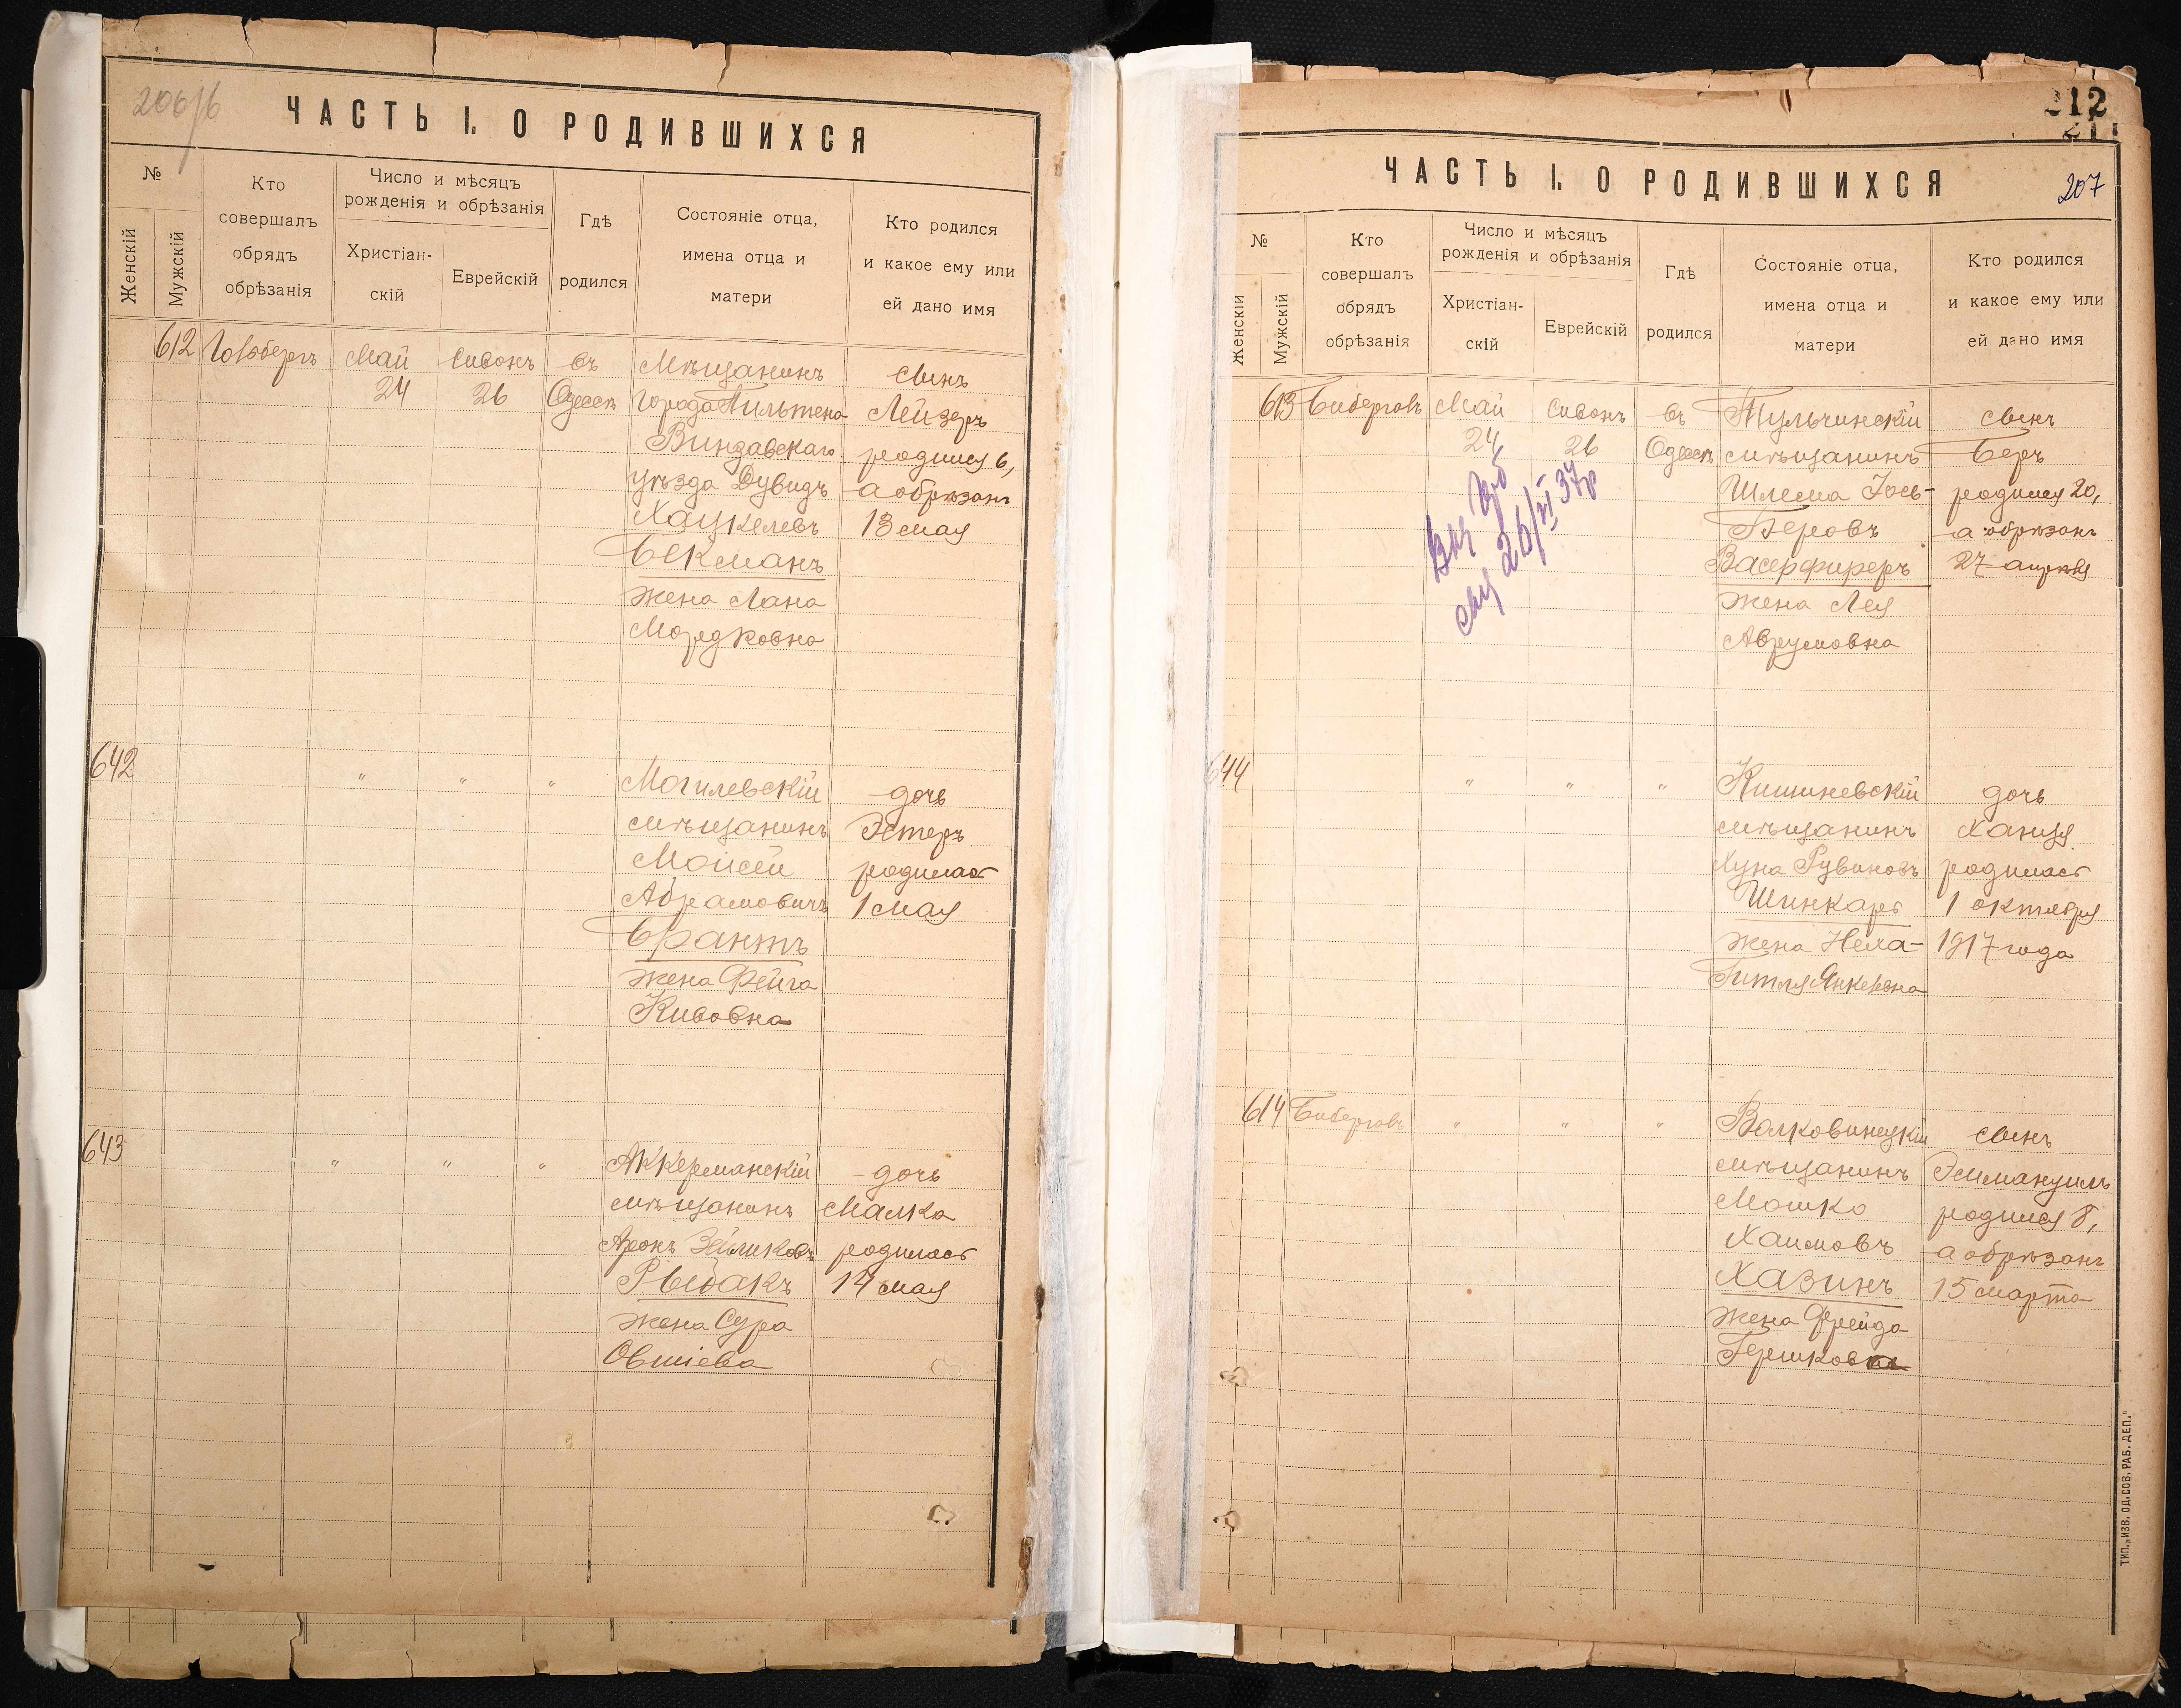 206/б
ЧАСТЬ I. О РОДИВШИХСЯ
№
Женскій
Мужскій
Кто
совершалъ
обрядъ
обрѣзанія
Число и мѣсяцъ
рожденія и обрѣзанія
Христіан-
скій
Еврейскій
Гдѣ
родился
Состояніе отца,
имена отца и
матери
Кто родился
и какое ему или
ей дано имя
612 Май Сивонъ въ Мѣщанинъ сынъ
24 26 Одессѣ города Пильтена Лейзеръ
Виндавскаго родился 6,
уѣзда Дувидъ а обрѣзанъ
Хацкелевъ 13 мая
Бекманъ
жена Хана
Мордковна
642 " " " Могилевскій дочь
мѣщанинъ Эстеръ
Моисей родилась
Абрамовичъ 1 мая
Брантъ
жена Фейга
Кивовна
643 " " " Аккерманскій дочь
мѣщанинъ Малка
Аронъ Зейликовъ родилась
Рыбакъ 14 мая
жена Сура
Овшіева
212
211
207
ЧАСТЬ I. О РОДИВШИХСЯ
№
Женскій
Мужскій
Кто
совершалъ
обрядъ
обрѣзанія
Число и мѣсяцъ
рожденія и обрѣзанія
Христіан-
скій
Еврейскій
Гдѣ
родился
Состояніе отца,
имена отца и
матери
Кто родился
и какое ему или
ей дано имя
613 Биберговъ Май Сивонъ въ Тульчинскій сынъ
24 26 Одессѣ мѣщанинъ Беръ
Шлема Іось- родился 20,
Беровъ а обрѣзанъ
Васерфиреръ 27 апрѣля
жена Лея
Аврумовна
26/VI 37г
644 " " " Кишиневскій дочь
мѣщанинъ Ханця
Хуна Рувиновъ родилась
Шинкарь 1 октября
жена Неха- 1917 года
Гитля Янкелевна
614 Биберговъ " " " Волковинецкій сынъ
мѣщанинъ Эммануилъ
Мошко родился 8,
Хаимовъ а обрѣзанъ
Хазинъ 15 марта
жена Фрейда
Гершковна
ТИП. „ИЗВ. ОД. СОВ. РАБ. ДЕП."